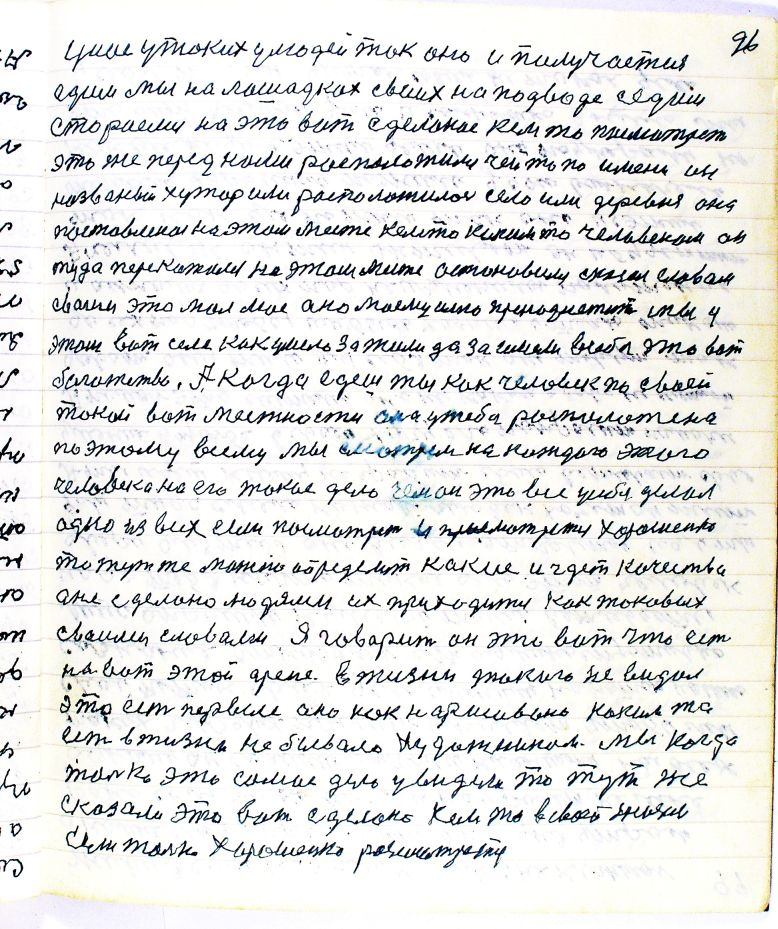 96
у таких у людей так оно и получается
едим мы на лошадках своих на подводе седим
стораемси на это вот сделоное кем то посмотреть
это же перед нами росположили чейто по имени он
названый хутор или росположилося село или деревня она
поставлена на этом месте кемто каким то человеком он
туда на этом месте остоновили словам
своим это моя мое оно моему мы у
этом вот селе как зажили да заимели в себя это вот
богатство. А когда едеш ты как человек по своей
такой вот местности она у тебя росположена
поэтому всему мы смотрим на каждого этого
человека на его такое дело чем он это все у себя делал
одно из всех если посмотрет и присмотретя хорошенко
то тут же можно определит какие идет качества
оне сделоно людями их приходится как токовых
своими словами Я говорит он это вот что ест
на вот этой арене. В жизни такого не видал
это ест первые оно как нарисовано каким та
ест в жизни не бывало художником. Мы когда
толко это самое дело увидели то тут же
сказали это вот сделоно кем то в своей жизни
Если толко хорошенко розсмотретя